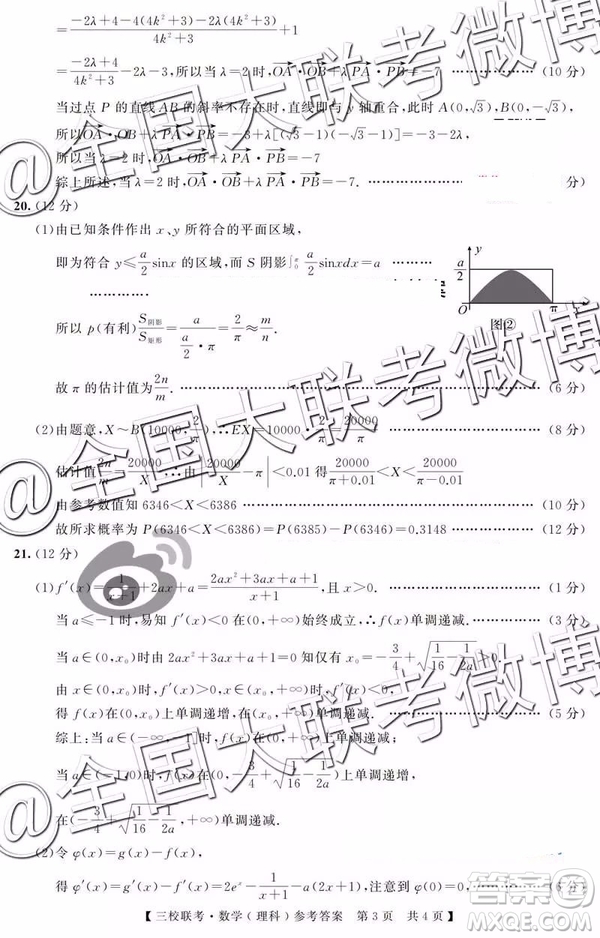 =\frac{-2λ+4-4(4k²+3)-2λ(4k²+3)}{4k²+3}+1
=\frac{-2λ+4}{4k²+3}-2λ-3,所以当λ=2时,\vec{OA}·\vec{OB}+λ\vec{PA}·\vec{PB}=-7 ……………… (10分)
当过点P的直线AB的斜率不存在时,直线即与y轴重合,此时A(0,√3),B(0,-√3),
所以\vec{OA}·\vec{OB}+λ\vec{PA}·\vec{PB}=-3+λ[(√3-1)(-√3-1)]=-3-2λ,
所以当λ=2时,\vec{OA}·\vec{OB}+λ\vec{PA}·\vec{PB}=-7
综上所述,当λ=2时,\vec{OA}·\vec{OB}+λ\vec{PA}·\vec{PB}=-7. ……………… 分)
20.(12分)
(1)由已知条件作出x、y所符合的平面区域,
即为符合y≤\frac{a}{2}sinx的区域,而S阴影∫_0^π\frac{a}{2}sinxdx=a ………
……………
y
\frac{a}{2}
O π x
图②
所以p(有利)\frac{S_{阴影}}{S_{矩形}}=\frac{a}{\frac{a}{2}·π}=\frac{2}{π}≈\frac{m}{n}.
故π的估计值为\frac{2n}{m}. ……………… (6分)
(2)由题意,X~B(10000,\frac{2}{π}),∴EX=10000·\frac{2}{π}=\frac{20000}{π} ……………… (8分)
估计值\frac{2n}{m}=\frac{20000}{X},|\frac{20000}{X}-π|<0.01得\frac{20000}{π+0.01}<X<\frac{20000}{π-0.01}
由参考数值知6346<X<6386 ……………… (10分)
故所求概率为P(6346<X<6386)=P(6385)-P(6346)=0.3148 ……………… (12分)
21.(12分)
(1)f′(x)=\frac{1}{x+1}+2ax+a=\frac{2ax²+3ax+a+1}{x+1},且x>0. ……………… (1分)
当a≤-1时,易知f′(x)<0在(0,+∞)始终成立,∴f(x)单调递减. ……………… (3分)
当a∈(-1,0)时由2ax²+3ax+a+1=0知仅有x₀=-\frac{3}{4}+\sqrt{\frac{1}{16}-\frac{1}{2a}}.
由x∈(0,x₀)时,f′(x)>0,x∈(x₀,+∞)时,f′(x)<0,
得f(x)在(0,x₀)上单调递增,在(x₀,+∞)上单调递减. ……………… (5分)
综上:当a∈(-∞,-1]时,f(x)在(0,+∞)上单调递减;
当a∈(-1,0)时,f(x)在(0,-\frac{3}{4}+\sqrt{\frac{1}{16}-\frac{1}{2a}})上单调递增,
在(-\frac{3}{4}+\sqrt{\frac{1}{16}-\frac{1}{2a}},+∞)上单调递减.
(2)令φ(x)=g(x)-f(x),
得φ′(x)=g′(x)-f′(x)=2eˣ-\frac{1}{x+1}-a(2x+1) (6分)
【三校联考·数学(理科)参考答案 第3页 共4页】
@全国大联考微博
@全国大联考微博
@全国大联考微博